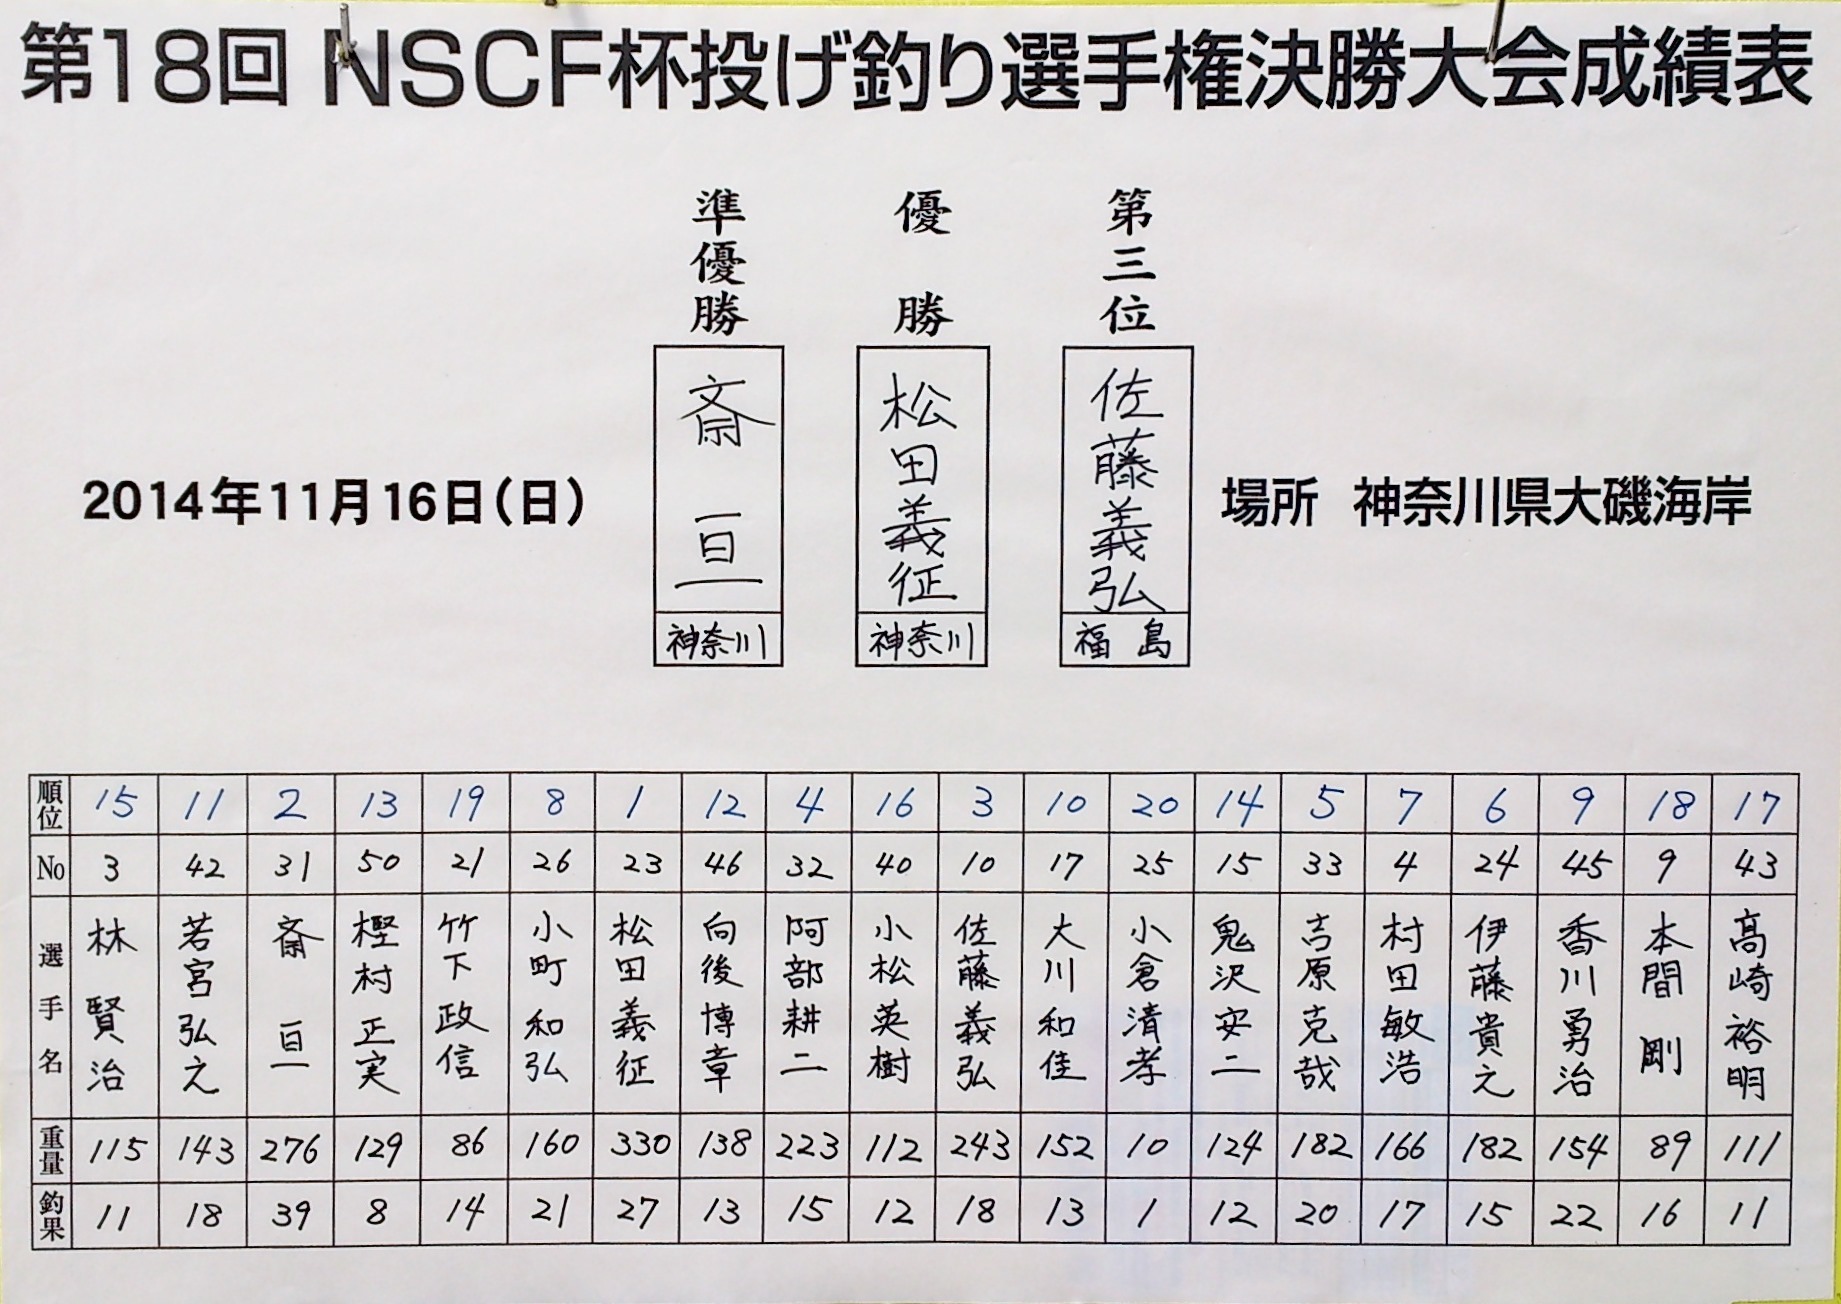 第18回 NSCF杯投げ釣り選手権決勝大会成績表
準優勝 優勝 第三位
斎 亘 松田義征 佐藤義弘
神奈川 神奈川 福島
2014年11月16日(日)
場所 神奈川県大磯海岸
順位 15 11 2 13 19 8 1 12 4 16 3 10 20 14 5 7 6 9 18 17
No 3 42 31 50 21 26 23 46 32 40 10 17 25 15 33 4 24 45 9 43
選手名 林賢治 若宮弘之 斎亘 樫村正実 竹下政信 小町和弘 松田義征 向後博章 阿部耕二 小松英樹 佐藤義弘 大川和佳 小倉清孝 鬼沢安二 吉原克哉 村田敏浩 伊藤貴之 香川勇治 本間剛 高崎裕明
重量 115 143 276 129 86 160 330 138 223 112 243 152 10 124 182 166 182 154 89 111
釣果 11 18 39 8 14 21 27 13 15 12 18 13 1 12 20 17 15 22 16 11